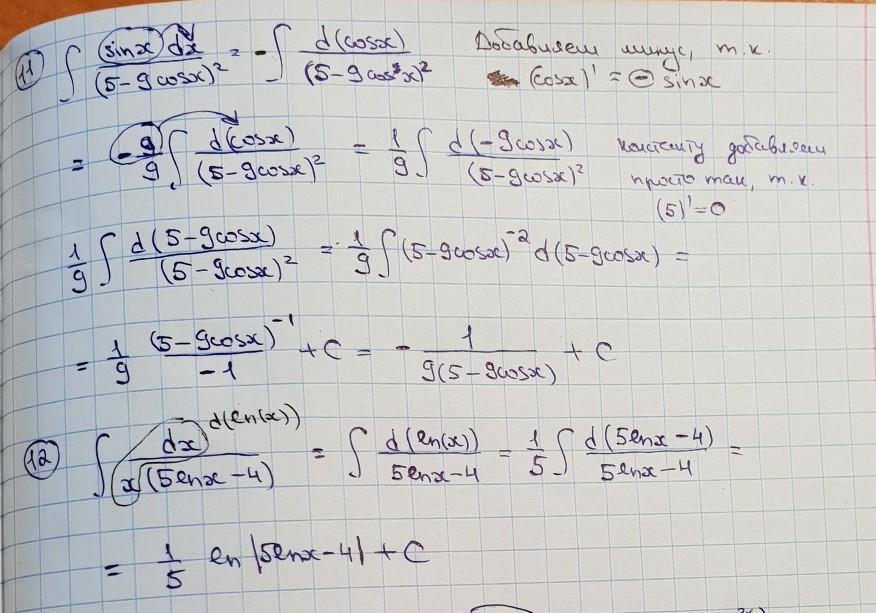 11 ∫ sinx dx / (5-9cosx)² = -∫ d(cosx) / (5-9cos²x)² Добавляем минус, т.к.
(cosx)' = -sinx
= -9/9 ∫ d(cosx) / (5-9cosx)² = 1/9 ∫ d(-9cosx) / (5-9cosx)² константу добавляем
просто так, т.к.
(5)'=0
1/9 ∫ d(5-9cosx) / (5-9cosx)² = 1/9 ∫ (5-9cosx)⁻² d(5-9cosx) =
= 1/9 (5-9cosx)⁻¹ / -1 + C = - 1 / 9(5-9cosx) + C
d(ln(x))
12 ∫ dx / x(5lnx-4) = ∫ d(ln(x)) / 5lnx-4 = 1/5 ∫ d(5lnx-4) / 5lnx-4 =
= 1/5 ln|5lnx-4| + C